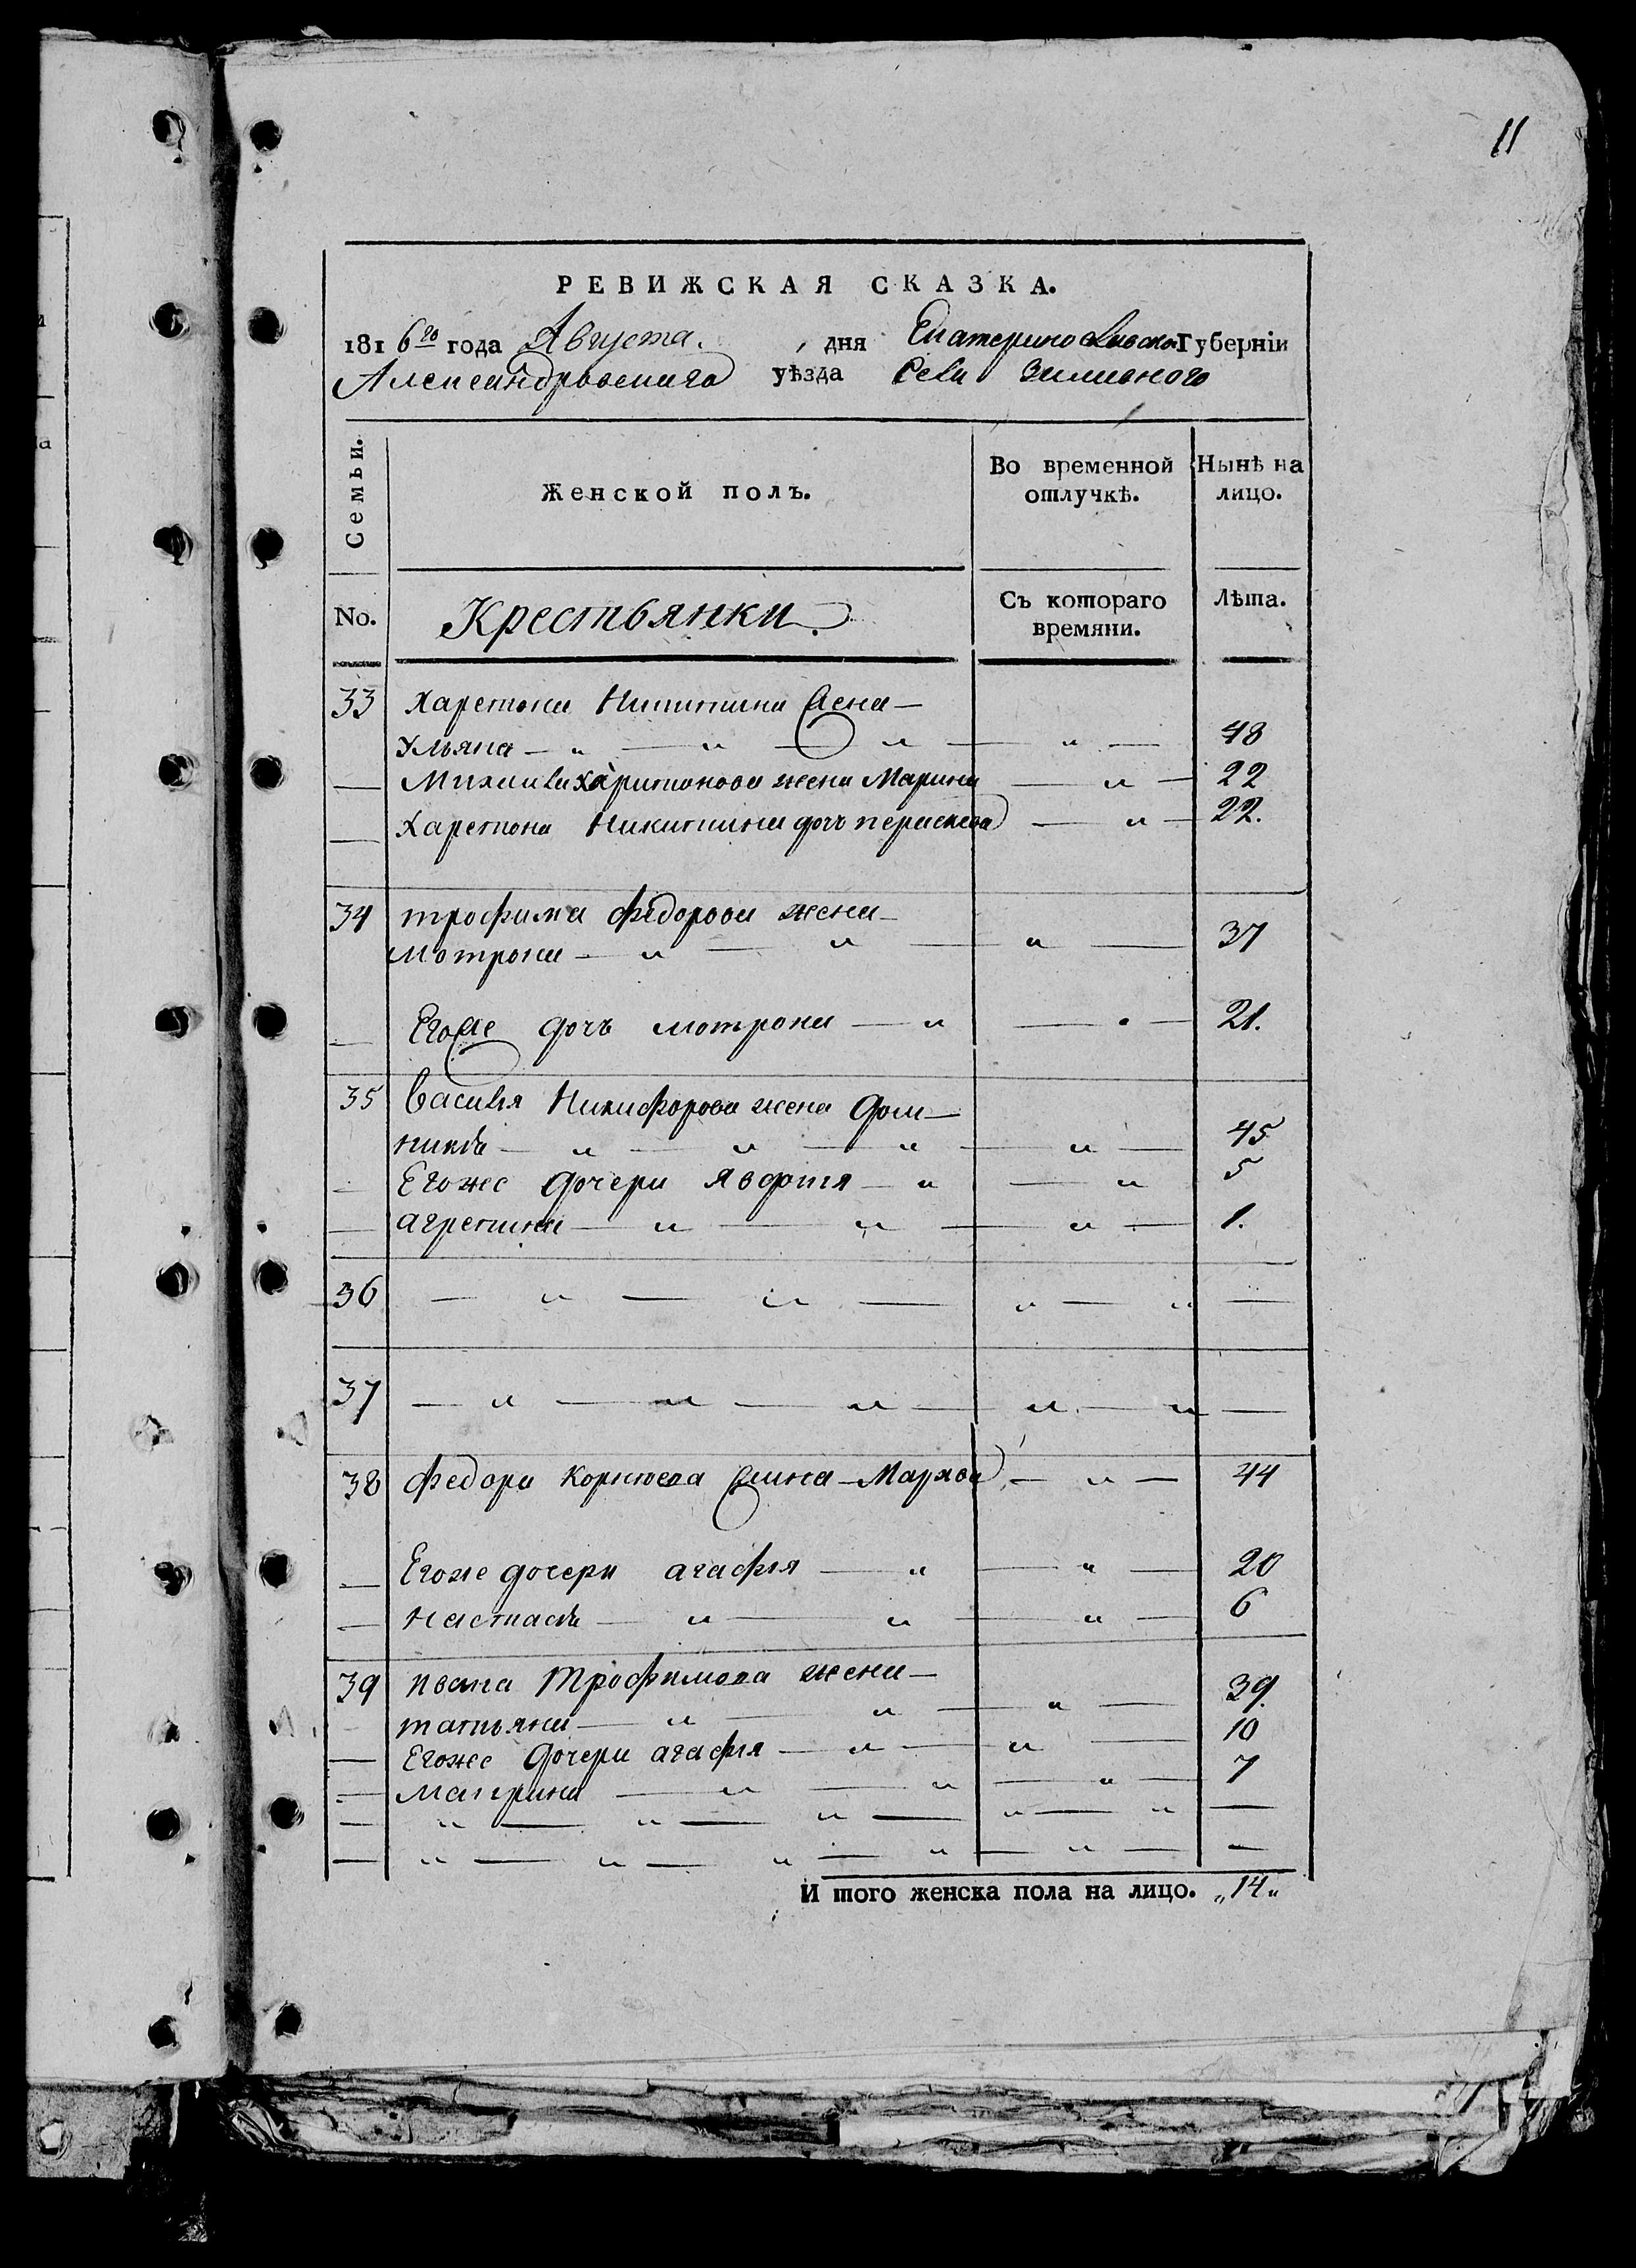 11
РЕВИЖСКАЯ СКАЗКА.
1816го года Августа. дня Екатеринославской Губерніи
Александровскаго уѣзда Села
Семьи. Женской полъ. Во временной Нынѣ на
отлучкѣ. лицо.
No. Крестьянки. Съ котораго Лѣта.
времяни.
33 Харетона Никитина жена —
Ульяна — „ — „ — „ — „ — 48
— Михаила Харитонова жена Марина — „ — 22
— Харетона Никитина дочь пераскева — „ — 22.
34 трофима федорова жена —
мотрона — „ — „ — „ — 37
— Егоже дочь мотрона — „ — „ — 21.
35 василья Никифорова жена Дом—
никъ — „ — „ — „ — „ — 45
— Егоже дочери Явдотя — „ — „ 5
— агрепина — „ — „ — „ — 1.
36 — „ — „ — „ — „ —
37 — „ — „ — „ — „ — „ —
38 федора Корнѣева жина — Марява — „ — 44
— Егоже дочери агафья — „ — „ — 20
— Настасъ — „ — „ — „ — 6
39 ивана Трофимова жена —
татьяна — „ — „ — „ — 39.
— Егоже дочери агафья — „ — „ — 10
— Маирина — „ — „ — „ — 7
— „ — „ — „ — „ — „ —
— „ — „ — „ — „ — „ — —
И того женска пола на лицо. „14„